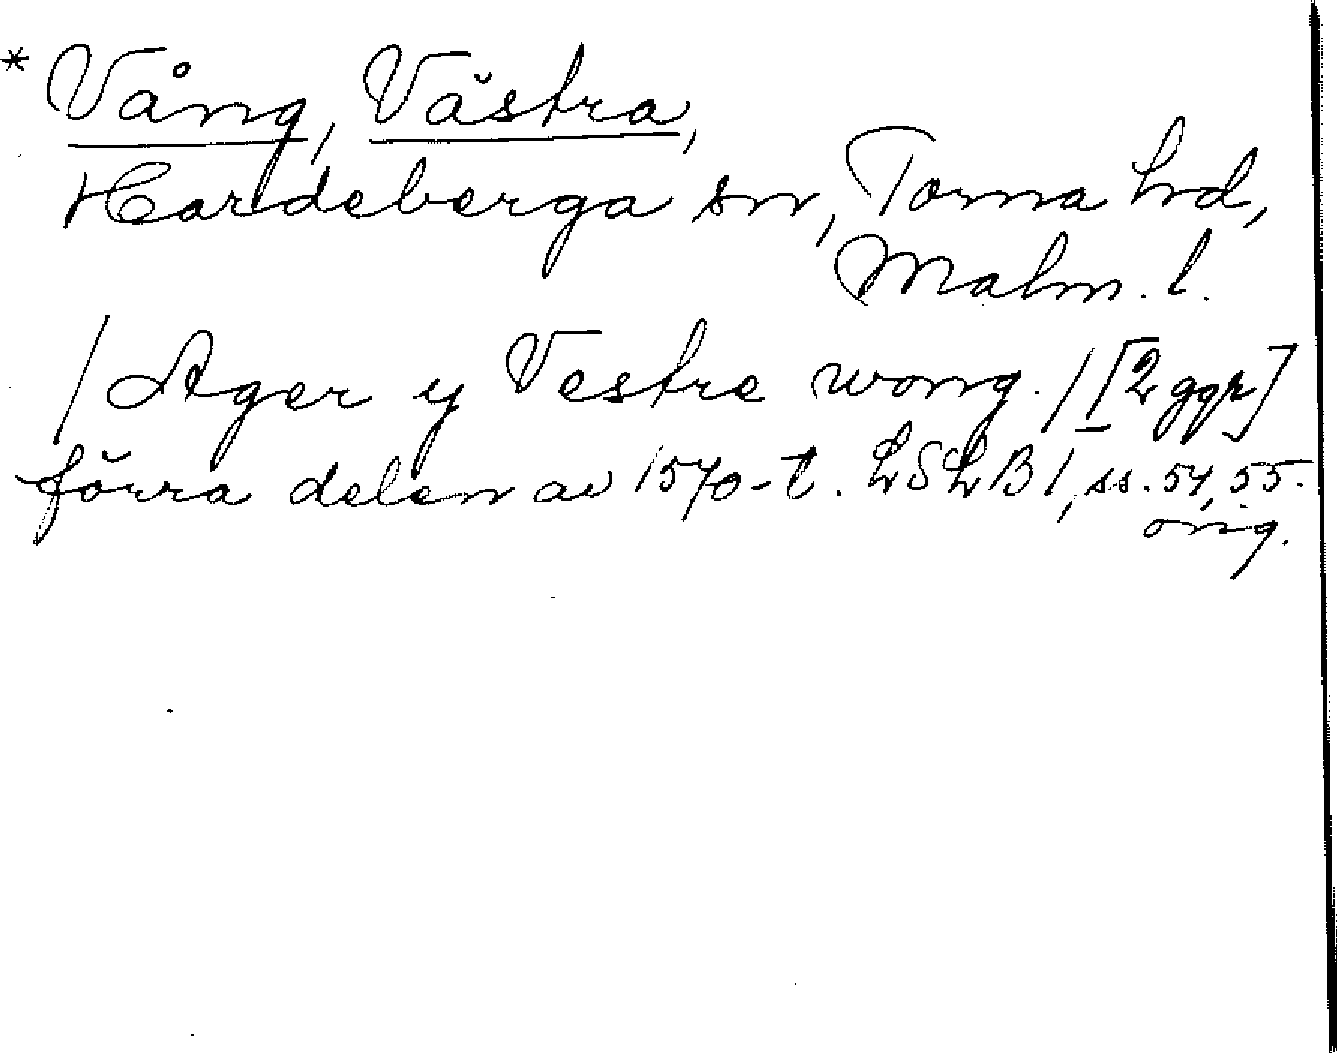 * Vång, Västra,
Hardeberga sn, Torna hd,
Malm. l.
/ Ager y Vestre wong. / [2 ggr]
förra delen av 1570-t. LSLB 1, ss. 54, 55.
orig.